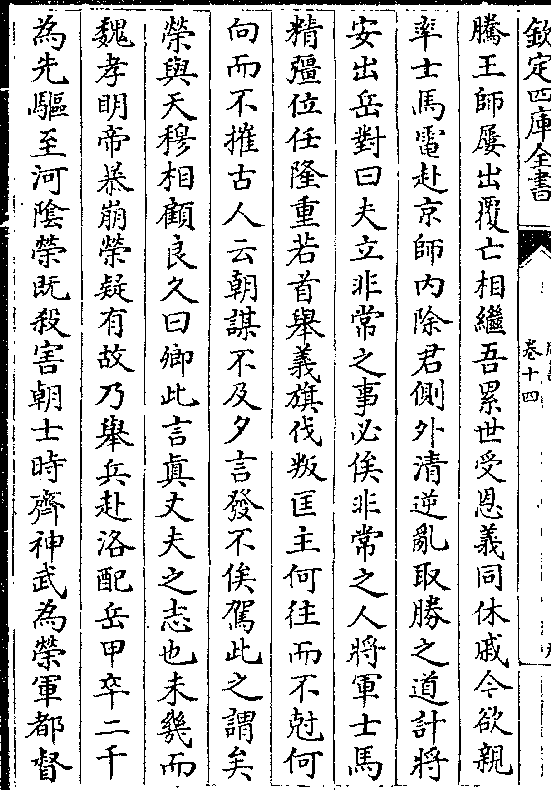 欽定四庫全書
卷十四
騰王師屢出覆亡相繼吾累世受恩義同休戚今欲親
率士馬電赴京師内除君側外清逆亂取勝之道計將
安出岳對曰夫立非常之事必俟非常之人將軍士馬
精彊位任隆重若首舉義旗伐叛匡主何往而不尅何
向而不摧古人云朝謀不及夕言發不俟駕此之謂矣
榮與天穆相顧良久曰卿此言真丈夫之志也未幾而
魏孝明帝暴崩榮疑有故乃舉兵赴洛配岳甲卒二千
為先驅至河陰榮既殺害朝士時齊神武為榮軍都督